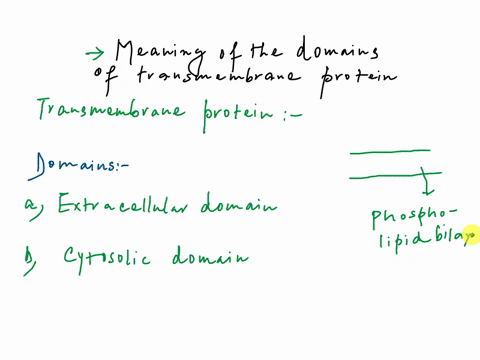 → Meaning of the domains
of transmembrane protein
Transmembrane protein :-
Domains:-
a, Extracellular domain
b, Cytosolic domain
phospho-
lipid bilay